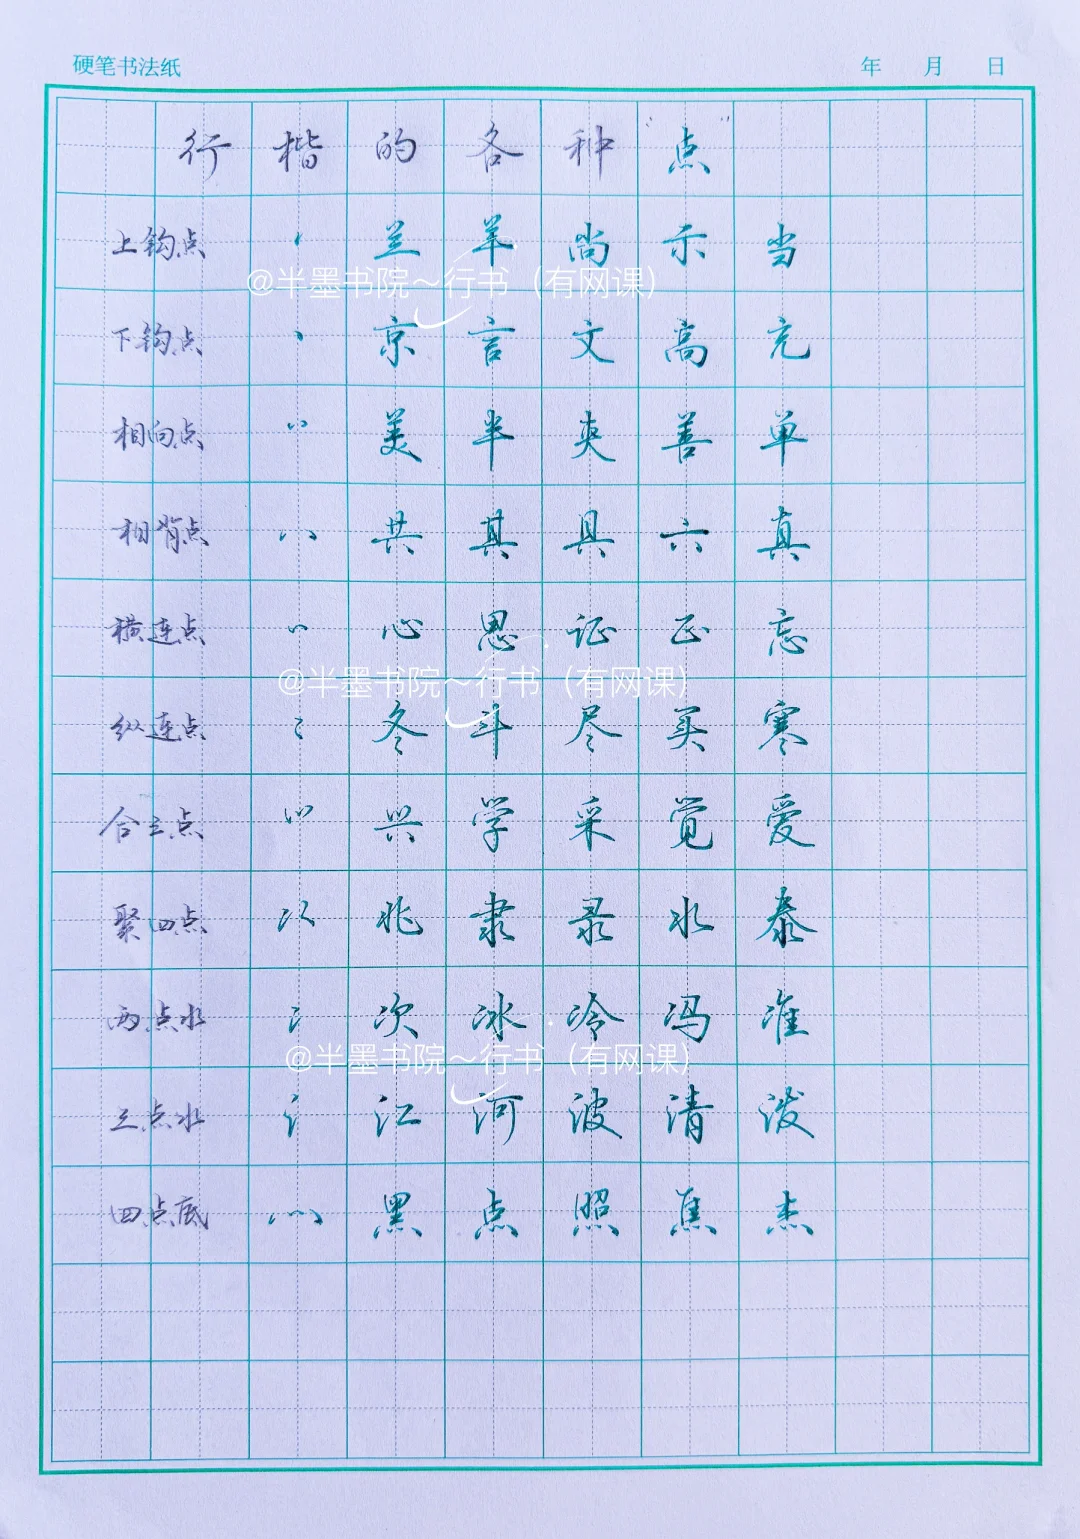 硬笔书法纸 年 月 日
行楷的各种"点"
上钩点 兰 羊 尚 示 当
@半墨书院～行书（有网课）
下钩点 京 言 文 高 充
相向点 美 半 夹 善 单
相背点 共 其 具 六 真
横连点 心 思 证 正 忘
@半墨书院～行书（有网课）
纵连点 冬 斗 尽 买 寒
合三点 兴 学 采 觉 爱
聚四点 兆 隶 录 水 泰
两点水 次 冰 冷 冯 准
@半墨书院～行书（有网课）
三点水 江 河 波 清 泼
四点底 黑 点 照 焦 杰